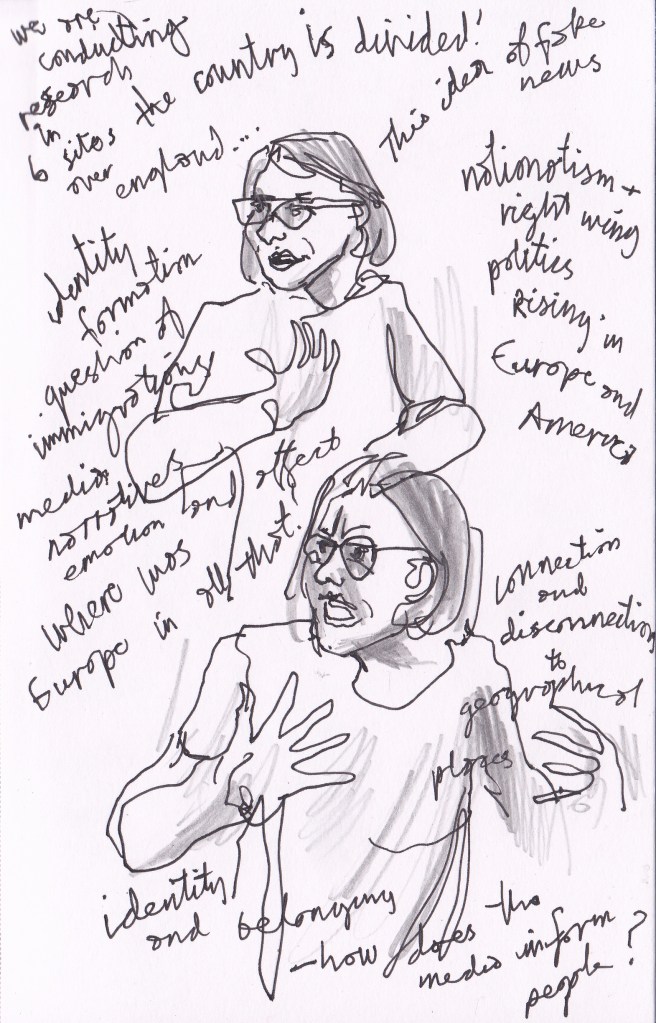 we are
conducting
research
in
6 sites
over england....
the country is divided!
This idea of fake
news
nationalism +
right wing
politics
Rising in
Europe and
America
identity
formation
question of
immigrations
media
narratives
emotion and affect
where was
Europe in all that.
connection
and
disconnection
to
geographical
places
identity
and belonging
- how does the
media inform
people?